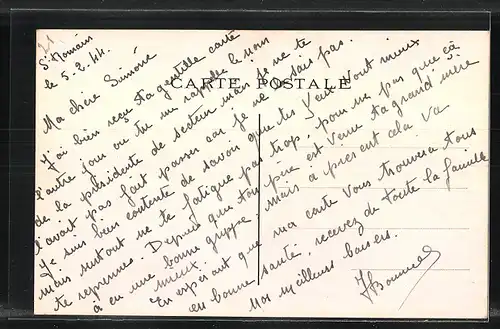 21
St Romain
le 5.2.44.
CARTE POSTALE
Ma chère Simone
J'ai bien reçu ta gentille carte
l'autre jour ou tu me rappelle le nom
de la présidente de secteur mais je ne te
l'avait pas fait passer car je ne le sais pas.
Je suis bien contente de savoir que tes yeux vont mieux
mais surtout ne te fatigue pas trop, pour ne pas que çà
te reprennes. Depuis que ton père est venu ta grand'mère
à eu une bonne grippe. Mais à présent cela va
mieux.
En espérant que ma carte vous trouvera tous
en bonne santé, recevez de toute la famille
Nos meilleurs baisers.